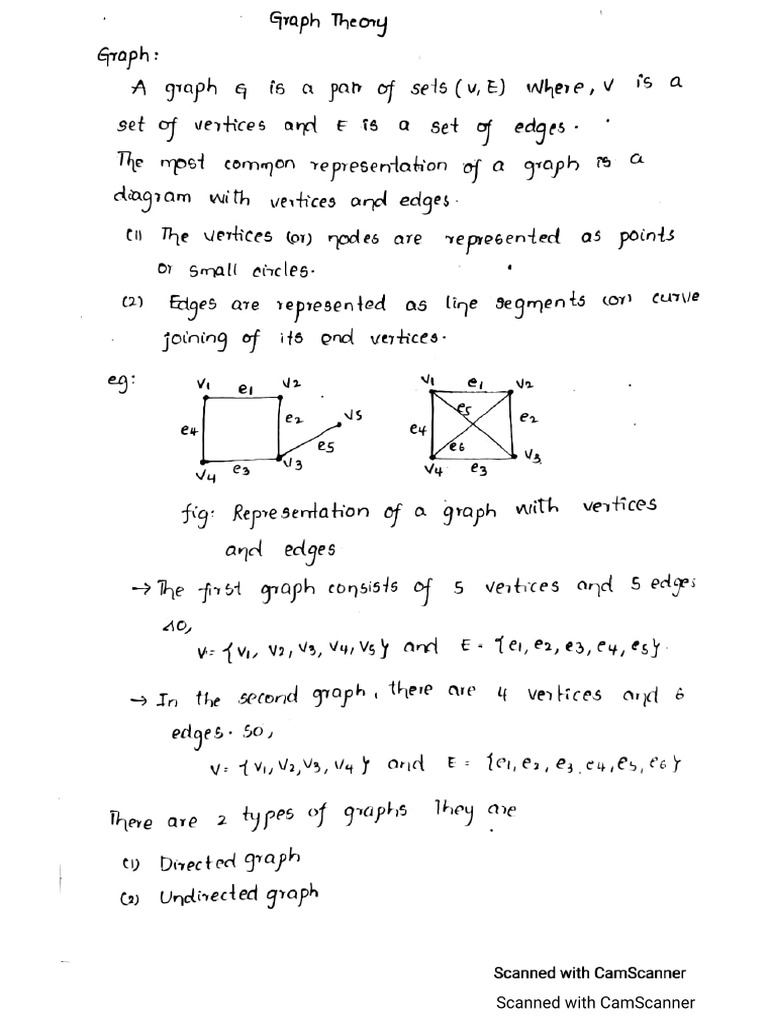 Graph Theory
Graph:
A graph G is a pair of sets (V, E) where, V is a
set of vertices and E is a set of edges.
The most common representation of a graph is a
diagram with vertices and edges.
(1) The vertices (or) nodes are represented as points
or small circles.
(2) Edges are represented as line segments (or) curve
joining of its end vertices.
eg:
v1 e1 v2
e4 e2 v5
e5
v4 e3 v3
v1 e1 v2
e5
e4 e2
e6
v4 e3 v3
fig: Representation of a graph with vertices
and edges
→ The first graph consists of 5 vertices and 5 edges
so,
V = {v1, v2, v3, v4, v5} and E = {e1, e2, e3, e4, e5}.
→ In the second graph, there are 4 vertices and 6
edges. so,
V = {v1, v2, v3, v4} and E = {e1, e2, e3, e4, e5, e6}
There are 2 types of graphs They are
(1) Directed graph
(2) Undirected graph
Scanned with CamScanner
Scanned with CamScanner